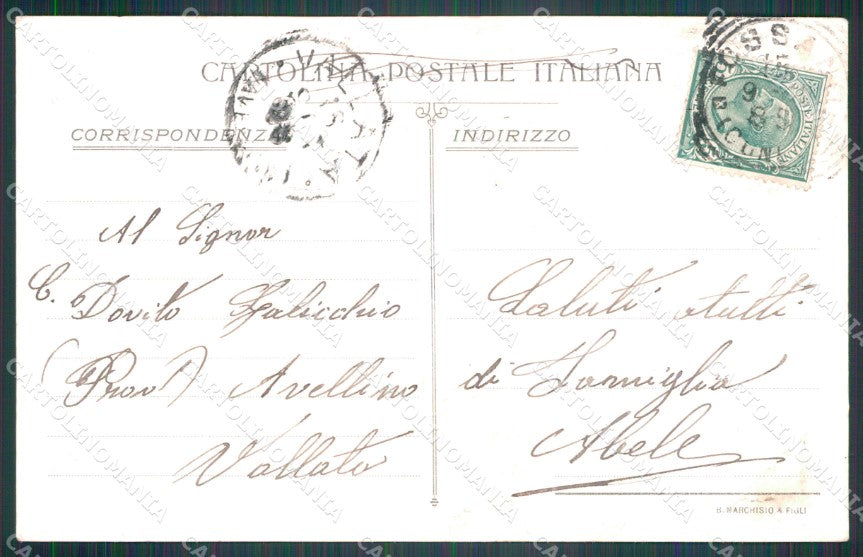 CARTOLINA POSTALE ITALIANA
CORRISPONDENZA
INDIRIZZO
Al Signor
C. Dovito
(Prov) Avellino
Vallata
Saluti
di Famiglia
Abele
POSTE ITALIANE
B. MARCHISIO & FIGLI
CARTOLINOMANIA